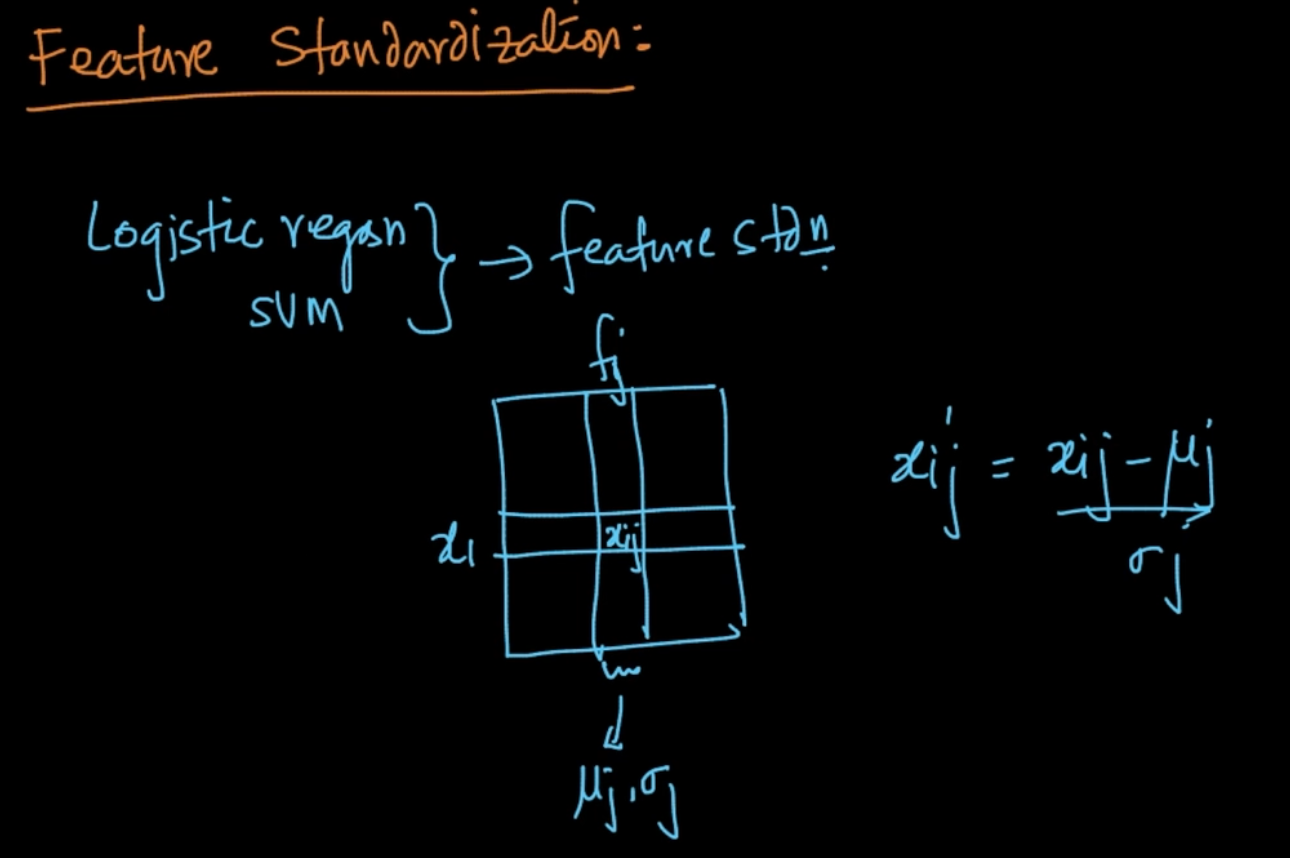 Feature Standardization:
Logistic regsn } → feature stdn
SVM
fj
xij' = xij - μj
xi
xij
σj
μj, σj